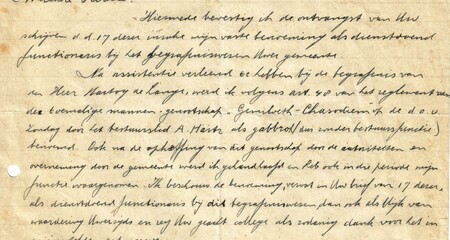 Hiermede bevestig ik de ontvangst van Uw
schrijven d.d. 17 dezer inzake mijn vaste benoeming als dienstdoend
functionaris bij het begrafeniswezen Uwer gemeente.
Na assistentie verleend te hebben bij de begrafenis van
den Heer Hartog de Lange, werd ik volgens art. 48 van het reglement van
den toenmalige mannen-genootschap Gemilleth-Chasodiem op de d.o.v.
zondag door het bestuurslid A. als gabbe (dus zonder bestuursfunctie)
benoemd. Ook na de opheffing van dit genootschap door de autoriteiten en
overneming door de gemeente werd ik gehandhaafd en heb ook in die periode mijn
functie waargenomen. Ik beschouw de benoeming, vervat in Uw brief van 17 dezer,
als dienstdoend functionaris bij dit begrafeniswezen dan ook als blijk van
waardering Uwerzijds en zeg Uw geacht college als zodanig dank voor het in